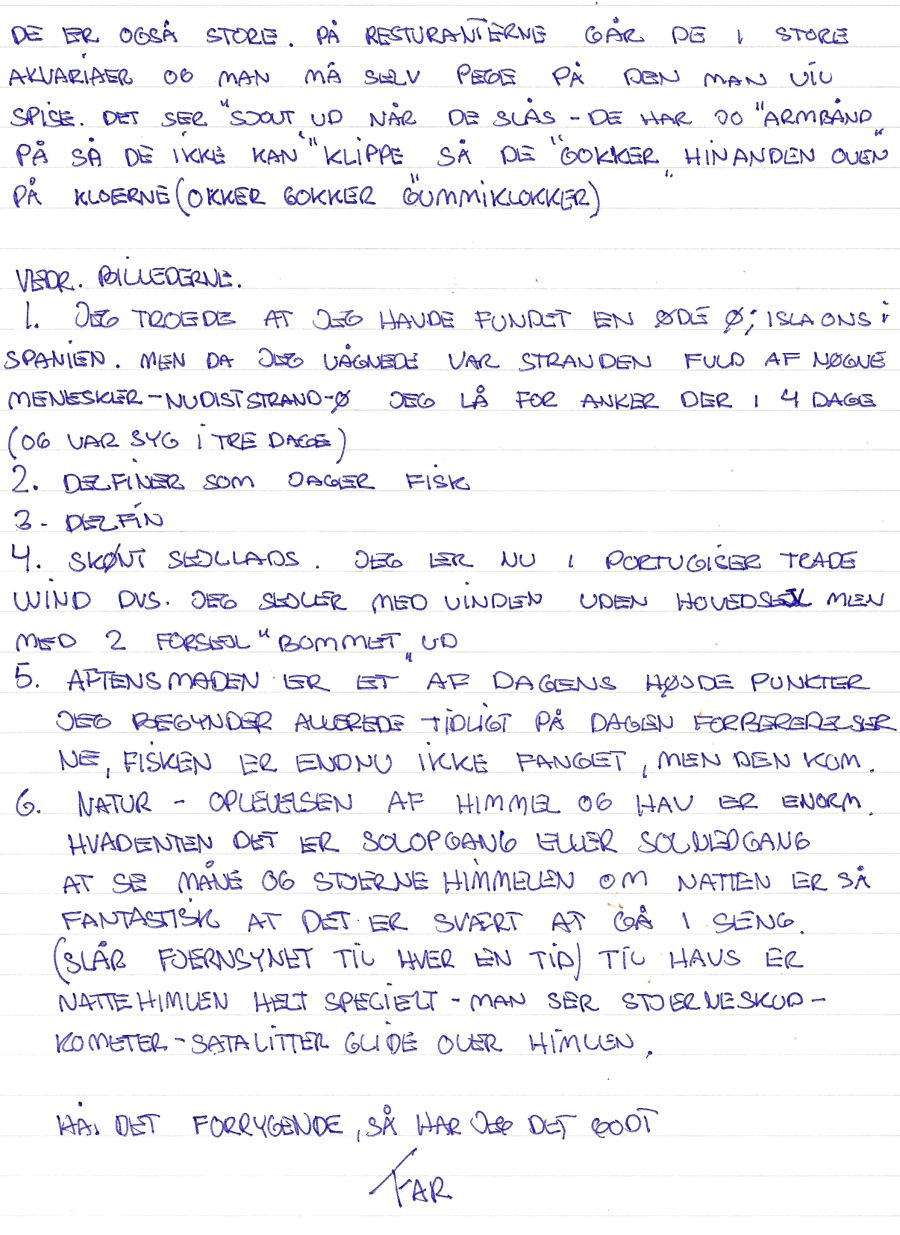 DE ER OGSÅ STORE. PÅ RESTURANTERNE GÅR DE I STORE
AKVARIAER OG MAN MÅ SELV PEGE PÅ DEN MAN VIL
SPISE. DET SER "SJOVT UD NÅR DE SLÅS - DE HAR JO "ARMBÅND"
PÅ SÅ DE IKKE KAN "KLIPPE" SÅ DE "GOKKER" HINANDEN OVEN
PÅ KLOERNE (OKKER GOKKER GUMMIKLOKKER)
VEDR. BILLEDERNE.
1. JEG TROEDE AT JEG HAVDE FUNDET EN ØDE Ø; ISLA ONS I
SPANIEN. MEN DA JEG VÅGNEDE VAR STRANDEN FULD AF NØGNE
MENESKER - NUDISTSTRAND-Ø JEG LÅ FOR ANKER DER I 4 DAGE
(OG VAR SYG I TRE DAGE)
2. DELFINER SOM JAGER FISK
3 - DELFIN
4. SKØNT SEJLLADS. JEG ER NU I PORTUGISER TRADE
WIND DVS. JEG SEJLER MED VINDEN UDEN HOVEDSEJL MEN
MED 2 FORSEJL "BOMMET" UD
5. AFTENSMADEN ER ET AF DAGENS HØJDE PUNKTER
JEG BEGYNDER ALLEREDE TIDLIGT PÅ DAGEN FORBEREDELSER
NE, FISKEN ER ENDNU IKKE FANGET, MEN DEN KOM.
6. NATUR - OPLEVELSEN AF HIMMEL OG HAV ER ENORM.
HVADENTEN DET ER SOLOPGANG ELLER SOLNEDGANG
AT SE MÅNE OG STJERNE HIMMELEN OM NATTEN ER SÅ
FANTASTISK AT DET ER SVÆRT AT GÅ I SENG.
(SLÅR FJERNSYNET TIL HVER EN TID) TIL HAVS ER
NATTEHIMLEN HELT SPECIELT - MAN SER STJERNESKUD -
KOMETER - SATALITTER GLIDE OVER HIMLEN.
HA. DET FORRYGENDE, SÅ HAR JEG DET GODT
FAR